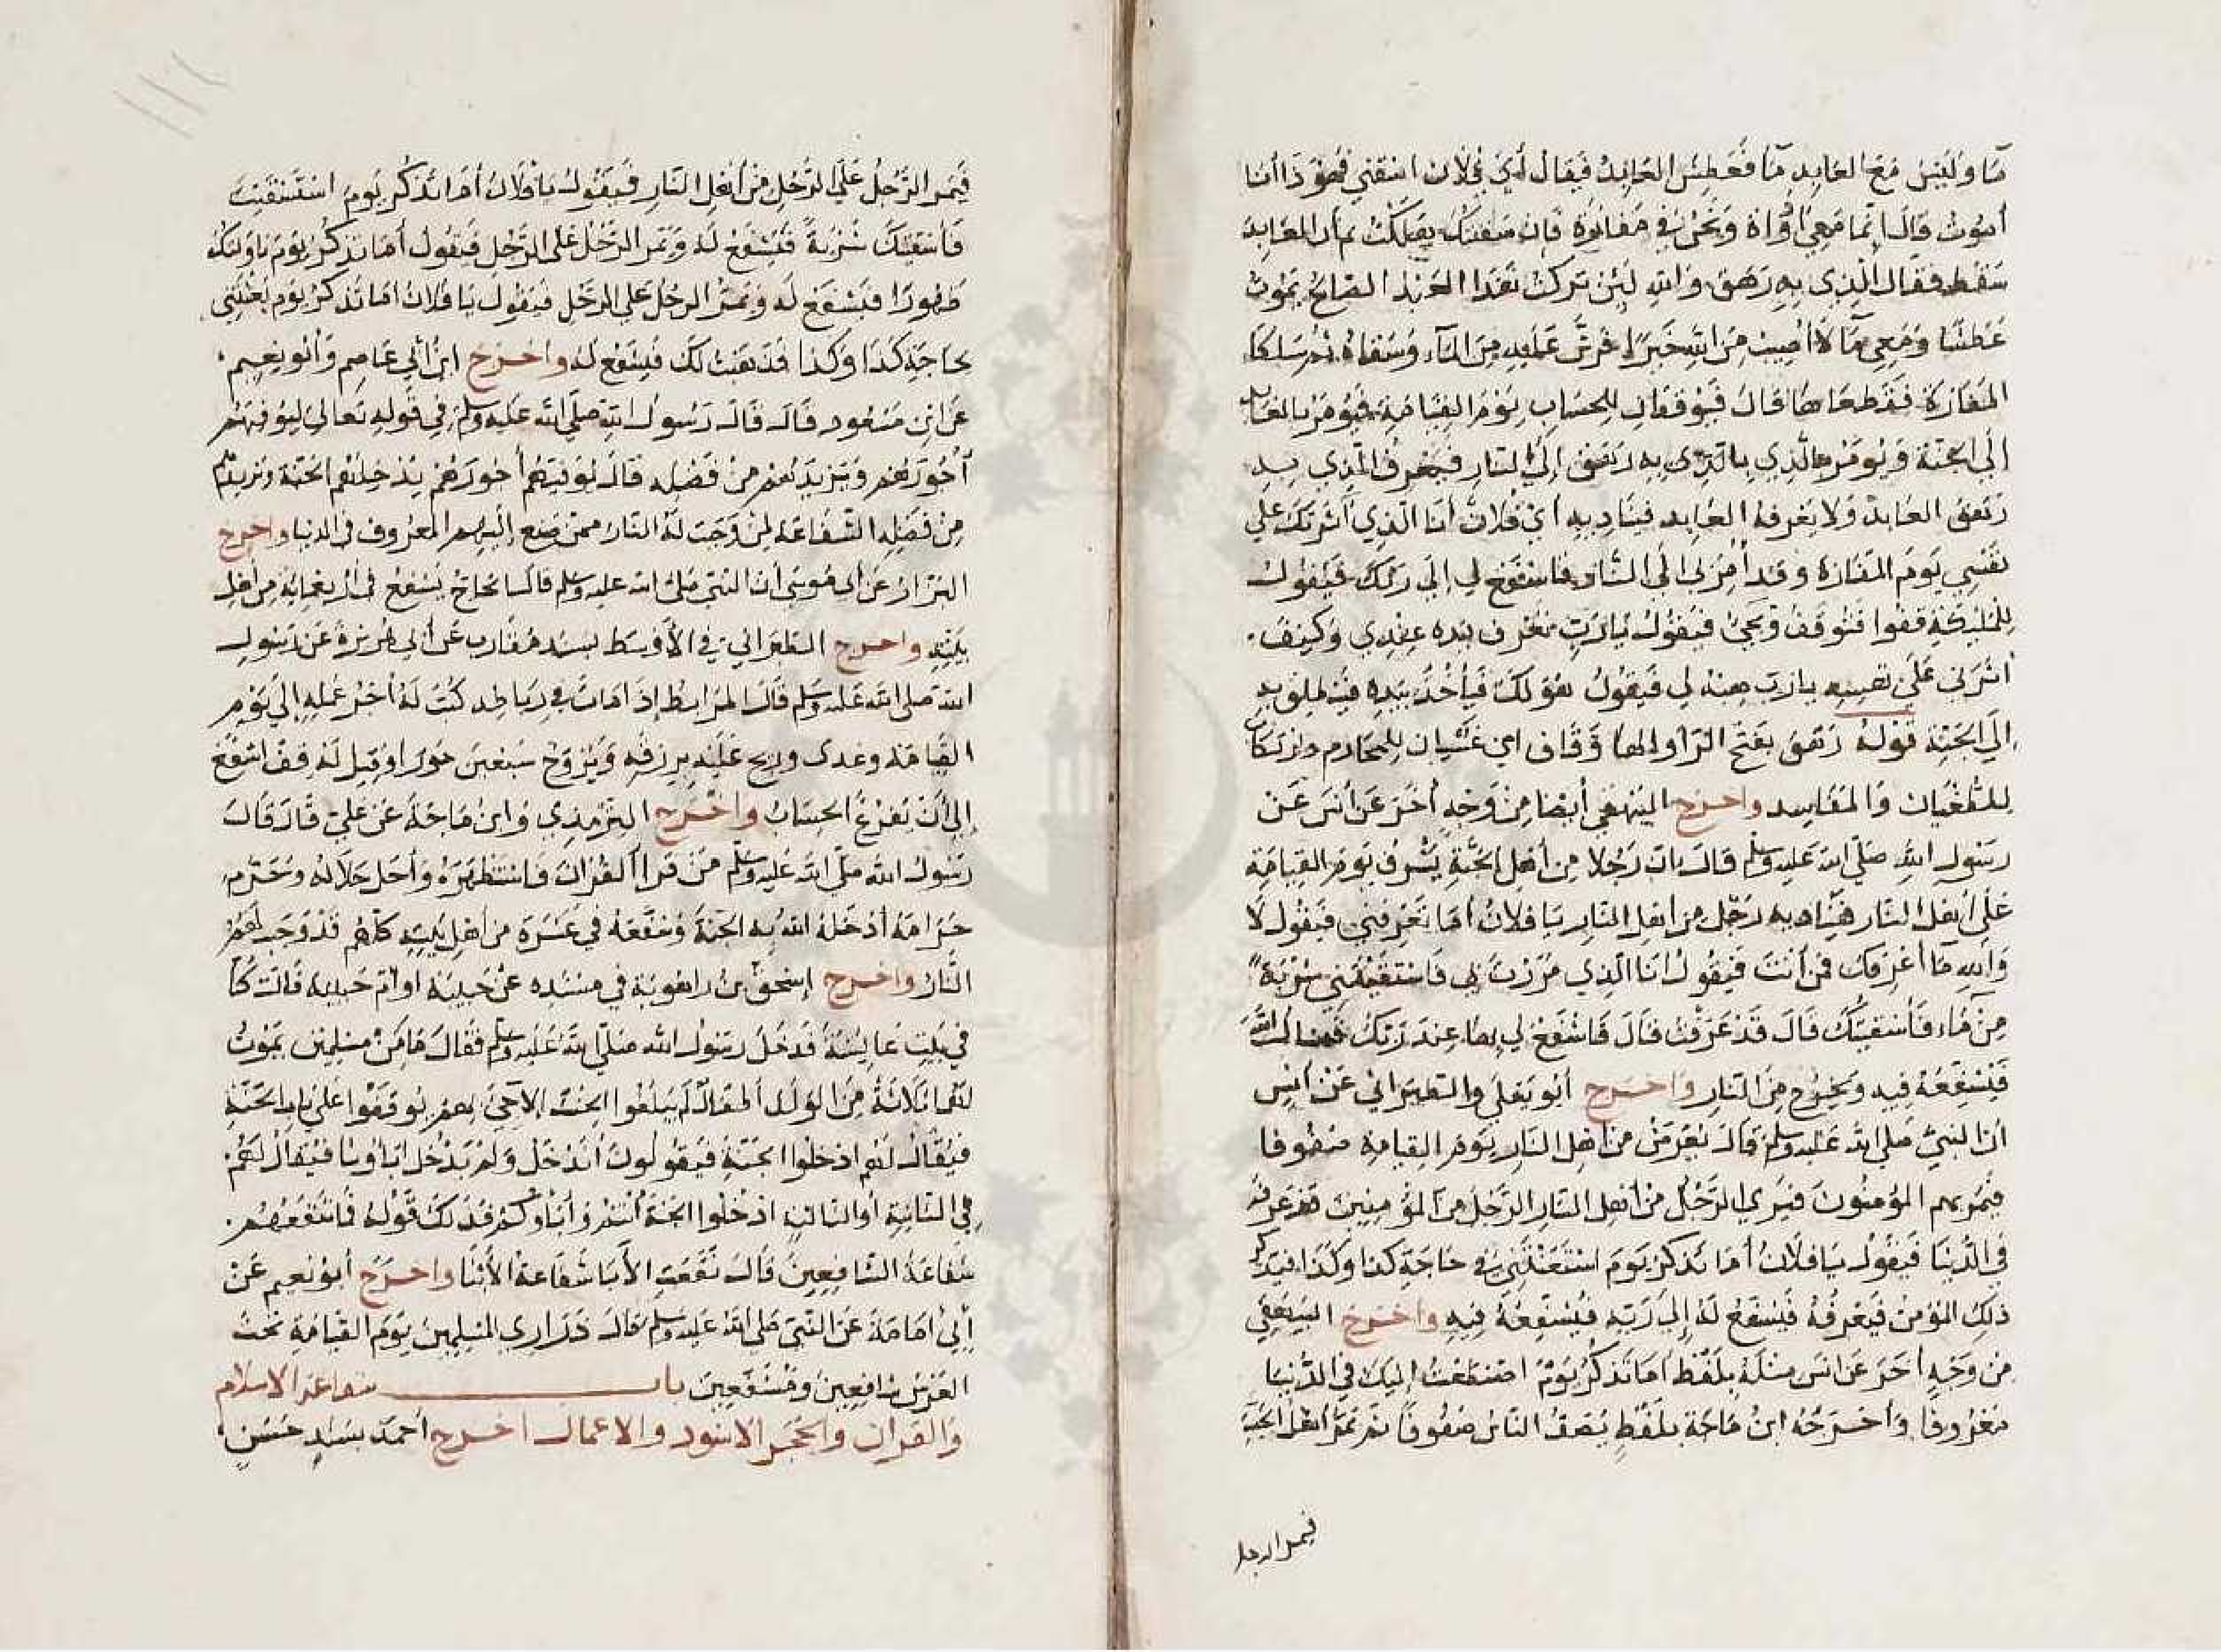 مَا وَلَيْسَ مَعَ العَابِدِ مَا فَعَطِشَ العَابِدُ فَيقَالُ أَيْ فُلَانُ اسْقِنِي فَهُوَ ذَا أَنَا
أَمُوتُ قَالَ إِنَّمَا مَعِي اوَاة وَنَحْنُ فِي مَفَازَةٍ فَإِنْ سَقَيْتُكَ هَلَكْتُ ثم أن العَابِدَ
سَقَطَ فقال الَّذِي بِهِ رَهَق وَاللهِ لَئِنْ تَرَكْتُ هَذَا العَبْدَ الصَّالِحَ يَمُوتُ
عَطَشًا وَمَعِي مَآ لَا أُصِيبُ مِنَ اللهِ خَيْرًا فَرَشَّ عَلَيْهِ مِنَ المَاء وَسَقَاهُ ثم سَلكا
المَفَازَةَ فَقَطَعَاهَا قَالَ فَيُوقَفَانِ لِلحِسَابِ يَوْمَ القِيَامَةِ فَيُؤمَرُ بالعَابِد
إِلَى الجَنَّةِ وَيُؤمَرُ بالَّذِي بِهِ رَهَق إِلَى النَّارِ فَيَعْرِفُ الَّذِي بِهِ
رَهَقٌ العَابِدَ وَلَا يَعْرِفُهُ العَابِد فينَادِيهِ أَيْ فُلَانُ أَنَا الَّذِي آثَرْتُكَ عَلَى
نَفْسِي يَوْمَ المَفَازَةِ وَقَد أُمِرَ بِي إِلَى النَّارِ فَاشْفَعْ لِي إِلَى رَبِّكَ فَيَقُولُ
لِلْمَلَيكَةِ قِفُوا فَتُوقَفُ وَيَجِيُ فَيَقُولُ يَارَبِّ تَعْرِف يَدَهُ عِنْدِي وَكَيْفَ
آثَرَنِي عَلَى نَفْسِهِ يارَبِّ هَبْهُ لِي فَيَقُولُ هُوَ لَكَ فَيَأْخُذُ بِيَدِهِ فَيَنْطَلِقُ بِهِ
إِلَى الجَنَّةِ قَوْلُهُ رَهَقٌ بِفَتْحِ الرَّا وَالهَا وَقَاف اي غَشَيَان لِلمَحَارِم وارتكاب
لِلطُّغْيَانِ وَالمَفَاسِدِ وَاخرج البَيْهَقِي أَيضًا مِنْ وَجْهٍ آخَرَ عَنْ أَنَسٍ عَنْ
رَسُولِ اللهِ صَلَّى اللهُ عَلَيْهِ وَسَلَّم قَالَ إِنَّ رَجُلًا مِنْ أَهْلِ الجَنَّةِ يُشْرِفُ يَومَ القِيَامَةِ
عَلَى أَهْلِ النَّارِ فَيُنَادِيهِ رَجُلٌ مِنْ أَهْلِ النَّارِ يَا فُلَانُ أَمَا تَعْرِفُنِي فَيَقُولُ لَا
وَاللهِ مَا أَعْرِفُكَ مَنْ أَنْتَ فَيَقُولُ أَنَا الَّذِي مَرَرْتَ بِي فَاسْتَسْقَيْتَنِي شَرْبَةً
مِنْ مَاء فَأَسْقَيْتُكَ قَالَ قَدْ عَرَفْتُ قَالَ فَاشْفَعْ لِي بِهَا عِنْدَ رَبِّكَ فَيَسأل اللهَ
فَيُشَفِّعُهُ فِيهِ وَيَخْرُجُ مِنَ النَّارِ وَاخرج أَبُو يَعْلَى وَالطَّبَرَانِي عَنْ أَنَسٍ
أَنَّ النَّبِيَّ صَلَّى اللهُ عَلَيْهِ وَسَلَّم قَالَ يُعْرَضُ مِنْ أَهْلِ النَّارِ يَوْمَ القِيَامَةِ صُفُوفًا
فَيَمُرُّ بهم المُؤمِنُونَ فَيَرَى الرَّجُلُ مِنْ أَهْلِ النَّارِ الرَّجُلَ مِنَ المُؤْمِنِينَ قَدْ عَرَفَهُ
فِي الدُّنْيَا فَيَقُولُ يَا فُلَانُ أَمَا تَذْكُرُ يَوْمَ اسْتَعَنْتَنِي فِي حَاجَةِ كَذَا وَكَذَا فَيَذْكُرُ
ذَلِكَ المُؤمِنُ فَيَعْرِفُهُ فَيَشْفَعُ لَهُ إِلَى رَبِّهِ فَيُشَفِّعُهُ فِيهِ وَاخرج البَيْهَقِي
مِنْ وَجْهٍ آخَرَ عَنْ أَنَس مِثْلَهُ بِلَفْظِ أَمَا تَذْكُرُ يَوْمَ اصْطَنَعْتُ إِلَيْكَ فِي الدُّنْيَا
مَعْرُوفًا وَأَخْرَجَهُ ابْنُ مَاجَة بِلَفْظِ يُصَفُّ النَّاسُ صُفُوفًا ثُمَّ يَمُرُّ أَهْلُ الجَنَّةِ
فيمر الرجل
فَيَمُر الرَّجُلُ عَلَى الرَّجُلِ مِنْ أَهْلِ النَّارِ فَيَقُولُ يَا فُلَانُ أَمَا تَذْكُرُ يَومَ اسْتَسْقَيْتَ
فَأَسْقَيْتُكَ شَرْبَةً فَيَشْفَعُ لَهُ وَيَمُر الرَّجُلُ عَلَى الرَّجُلِ فَيَقُولُ أَمَا تَذْكُرُ يَوْمَ نَاوَلْتُكَ
طَهُورًا فَيَشْفَعُ لَهُ وَيَمُرُّ الرَّجُلُ عَلَى الرَّجُلِ فَيَقُولُ يَا فُلَانُ أَمَا تَذْكُرُ يَوْم بَعَثْتَنِي
لحَاجَةِ كَذَا وَكَذَا فَذَهَبْتُ لَكَ فَيَشْفَعُ لَهُ وَاخرج ابْنُ أَبِي عَاصِم وَأَبُو نعَيم
عَنِ ابْنِ مَسْعُود قَالَ قَالَ رَسُولُ اللهِ صَلَّى الله عَلَيْهِ وَسَلَّم فِي قَولِهِ تَعَالَى لِيُوَفِّيَهُمْ
أُجُورَهُم وَيَزِيدَهُمْ مِنْ فَضْلِهِ قَالَ يُوَفِّيهُم أُجُورَهُمْ يُدْخِلُهُم الجَنَّةَ وَيَزِيدُهُم
مِنْ فَضْلِهِ الشَّفَاعَة لِمَنْ وَجَبَتْ لَهُ النَّارُ مِمَّنْ صَنَعَ إِلَيْهِمُ المَعْرُوف فِي الدنيا وَاخرج
البَزَّارُ عَنْ أَبِي مُوسَى أَنَّ النَّبِيَّ صَلَّى الله عليه وسلم قَالَ الحَاجُّ يَشْفَعُ في أَرْبَعمِايَةٍ مِنْ أَهْلِ
بَيْتِهِ وَاخرج الطَّبَرَانِي فِي الأَوْسَطِ بِسَنَدٍ مُقَارِب عَنْ أَبِي هُرَيْرَةَ عَنْ رَسُولِ
اللهِ صلى اللهُ عَلَيْهِ وَسَلَّم قَالَ المُرَابِطُ إِذَا مَاتَ فِي رِبَاطِهِ كُتبَ لَهُ أَجْرُ عَمَلِهِ إِلَى يَوْمِ
القِيَامَة وغدى وريح عَلَيْهِ بِرِزْقِهِ وَيُزَوَّج سَبْعِينَ حَورَا وَقِيلَ لَهُ قِف اشْفَعْ
إِلَى أَنْ يَفْرُغَ الحِسَابُ وَاخرج التِّرْمِذِي وَابنُ مَاجَة عَنْ عَلِيّ قَالَ قَالَ
رَسُولُ الله صَلَّى اللهُ عَلَيْهِ وَسَلَّم مَنْ قَرَأَ القُرْآنَ فَاسْتَظْهَرَهُ وَأَحَلَّ حَلَالَهُ وَحَرَّم
حَرَامَهُ أَدْخَلَهُ اللهُ بِهِ الجَنَّةَ وَشَفَّعَهُ فِي عَشَرَةٍ مِنْ أَهْلِ بَيْتِهِ كُلُّهُم قَدْ وَجَبَ لَهُمُ
النَّارُ وَاخرج إِسْحَقُ بنُ رَاهُويَة فِي مُسْنَدِهِ عَنْ حَبِيبَة أو أُمِّ حَبِيبَة قَالَتْ كُنَّا
فِي بَيْتِ عَايِشَةَ فَدَخَلَ رَسُولُ الله صَلَّى اللهُ عَلَيْهِ وَسَلَّم فَقَالَ مَا مِنْ مُسْلِمَيْنِ يَمُوتُ
لَهُمَا ثَلَاثَةٌ مِنَ الوَلَدِ أَطْفَالٌ لَمْ يَبْلُغُوا الحِنْثَ إِلَّا جِيَ بِهِمْ يُوقَفُوا عَلَى بَابِ الجَنَّةِ
فَيُقَالُ لَهُم ادْخُلُوا الجَنَّةَ فَيَقُولُونَ أَنَدْخُلُ وَلَمْ يَدْخُل آبَاؤُنَا فَيُقَالُ لَهُم
فِي الثَّانِيَةِ أَو الثَّالِثَةِ ادْخُلُوا الجَنَّةَ أَنْتُمْ وَآبَاؤُكُمْ فَذَلِكَ قَوْلُهُ فَمَا تَنْفَعُهُمْ
شَفَاعَةُ الشَّافِعِينَ قَالَ نَفَعَتِ الآبَا شَفَاعَةُ الأَبْنَا وَاخرج أَبُو نُعَيم عَنْ
أَبِي أُمَامَةَ عَنِ النَّبِيّ صَلَّى اللهُ عَلَيْهِ وَسَلَّم قَالَ ذَرَارِي المُسْلِمِينَ يَوْمَ القِيَامَةِ تَحْتَ
العَرْشِ شَافِعِينَ وَمُشَفَّعِينَ باب شفاعة الاسلام
وَالقرآن وَالحَجَرِ الاسود والاعمال اخرج أَحْمَد بسَنَدٍ حَسَنٍ